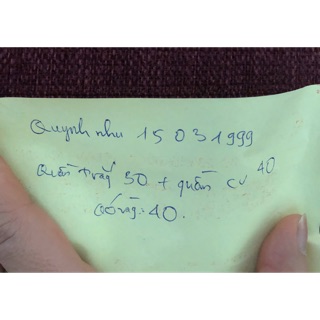 Quỳnh như 15031999
Quần trắng 30 + quần cũ 40
Công: 40.